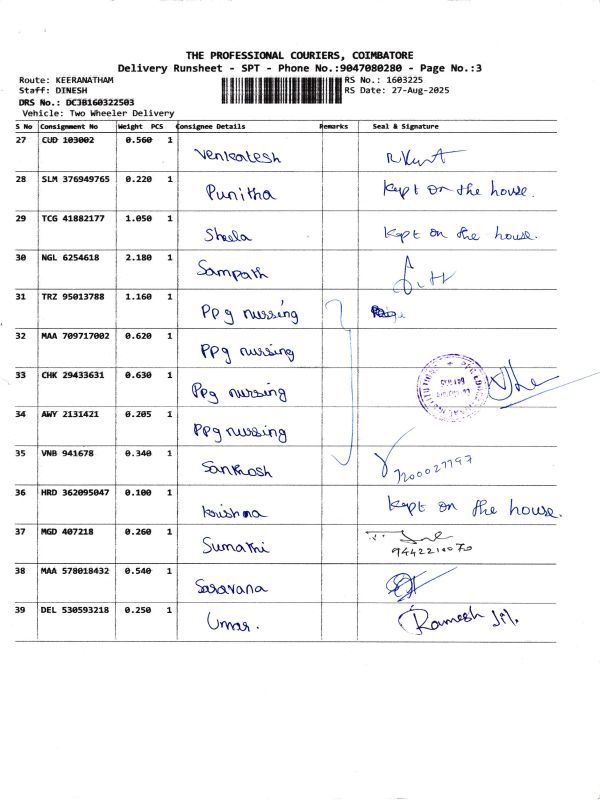 THE PROFESSIONAL COURIERS, COIMBATORE
Delivery Runsheet - SPT - Phone No.:9047080280 - Page No.:3
Route: KEERANATHAM RS No.: 1603225
Staff: DINESH RS Date: 27-Aug-2025
DRS No.: DCJB160322503
Vehicle: Two Wheeler Delivery
S No Consignment No Weight PCS Consignee Details Remarks Seal & Signature
27 CUD 103002 0.560 1 Venkatesh
28 SLM 376949765 0.220 1 Punitha Kept on the house.
29 TCG 41882177 1.050 1 Sheela Kept on the house.
30 NGL 6254618 2.180 1 Sampath
31 TRZ 95013788 1.160 1 PPg nursing
32 MAA 709717002 0.620 1 PPg nursing
33 CHK 29433631 0.630 1 PPg nursing
34 AWY 2131421 0.205 1 PPg nursing
35 VNB 941678 0.340 1 Santhosh
36 HRD 362095047 0.100 1 krishna Kept on the house.
37 MGD 407218 0.260 1 Sumathi
38 MAA 578018432 0.540 1 Saravana
39 DEL 530593218 0.250 1 Umar. Ramesh